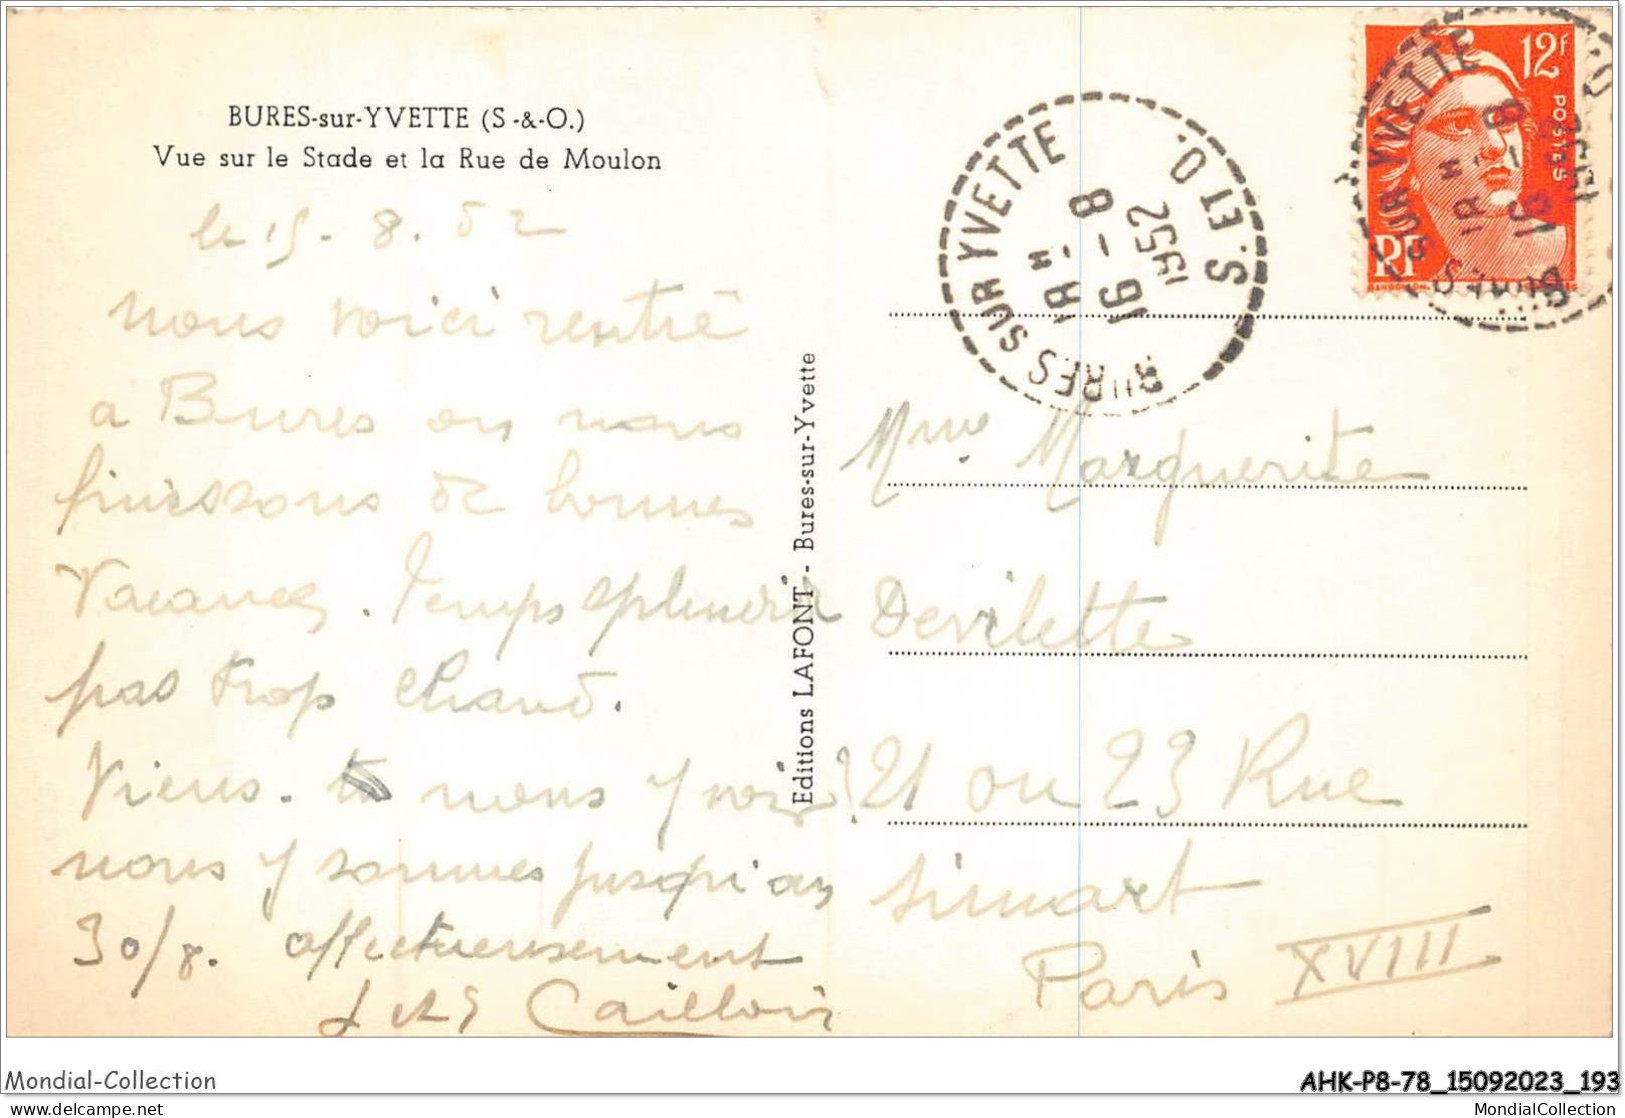 BURES-sur-YVETTE (S.-&-O.)
Vue sur le Stade et la Rue de Moulon
le 15.8.52
nous voici rentré
a Bures ou nous
finissons de bonnes
Vacances. Temps splendid
pas trop chaud.
Viens. tu nous y voir?
nous y sommes jusqu'au
30/8. affectueusement
Cailloin
Editions LAFONT - Bures-sur-Yvette
BURES SUR YVETTE S. ET O.
18 H
16 - 8
1952
12F
POSTES
RF
GANDON
BURES SUR YVETTE S. ET O.
18 H
16 - 8
1952
Mme Marguerite
Devilette
21 ou 23 Rue
Simart
Paris XVIII
Mondial-Collection
AHK-P8-78_15092023_193
delcampe.net
MondialCollection